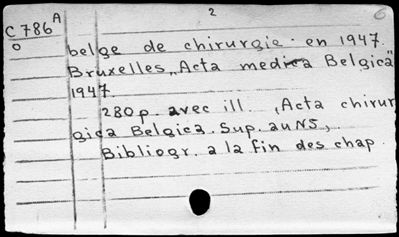 2
6
C 786 A
o
belge de chirurgie en 1947.
Bruxelles, „Acta medica Belgica"
1947.
280p. avec ill. (Acta chirur
gica Belgica. Sup. au N5),
Bibliogr. a la fin des chap.